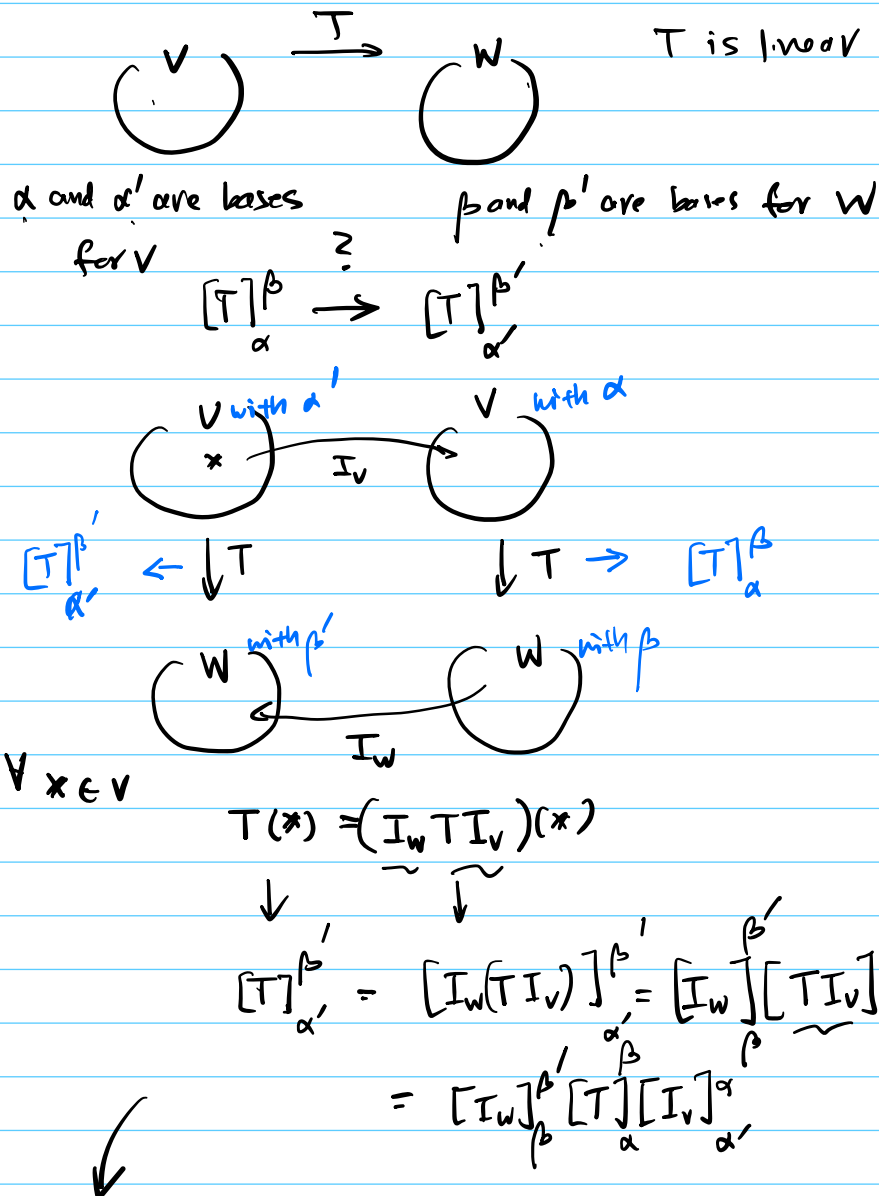 T
V W T is linear
α and α' are bases β and β' are bases for W
for V
?
[T]_α^β → [T]_α'^β'
V with α' V with α
x I_V
[T]_α'^β' ← ↓ T ↓ T → [T]_α^β
W with β' W with β
I_W
∀ x ∈ V
T(x) = (I_W T I_V)(x)
↓ ↓
[T]_α'^β' = [I_W(T I_V)]_α'^β' = [I_W]_β^β' [T I_V]
= [I_W]_β^β' [T]_α^β [I_V]_α'^α